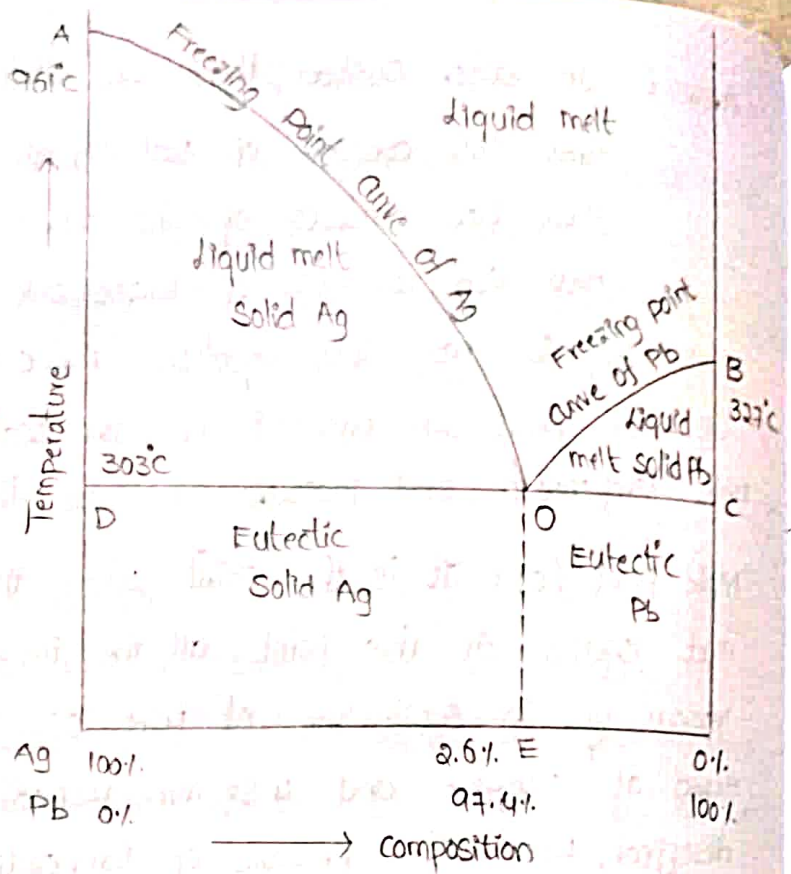 A
961°C
Freezing point curve of 3
Liquid melt
Liquid melt
Solid Ag
Freezing point
curve of Pb
B
327°C
Liquid
melt solid Pb
Temperature
303°C
D
O
C
Eutectic
Solid Ag
Eutectic
Pb
Ag 100%. 2.6%. E 0%.
Pb 0%. 97.4%. 100%.
Composition